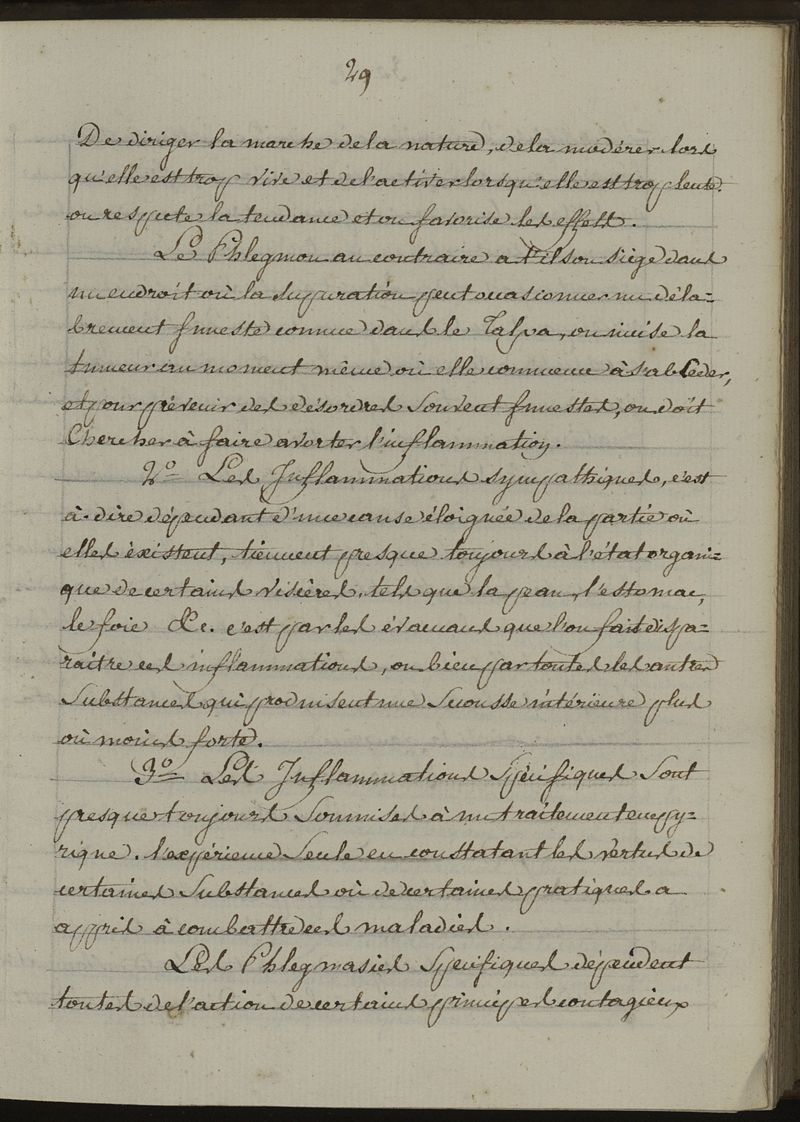 29
De diriger la marche de la nature, de la modérer lors
qu'elle est trop vive et de l'activer lorsqu'elle est trop lente.
on respecte la tendance et on favorise les effets.
Le Phlegmon au contraire a t'il son siège dans
un endroit où la supuration peut occasionner un déla=
brement funeste comme dans le Talpa, on incise la
tumeur au moment même où elle commence à s'abceder,
et pour prévenir des désordres souvent funestes, on doit
Chercher à faire avorter l'inflammation.
2.° Les Inflammations sympathiques, c'est
à-dire dépendant d'une cause éloignée de la partie où
elles èxistent, tiennent presque toujours à l'état organi=
que de certains viscères, tels que la peau, l'estomac,
le foie &c. c'est par les évacuans que l'on fait dispa=
raitre ces inflammations, ou bien par toutes les autres
Substances qui produisent une Secousse intérieure plus
où moins forte.
3.° Les Inflammations Spécifiques Sont
presque toujours Soumises à un traitement empy=
rique. l'expérience Seule en constatant les vertus de
certaines Substances où de certaines pratiques a
appris à combattre ces maladies.
Les Phlegmasies Spécifiques dépendent
toutes de l'action de certains principes contagieux